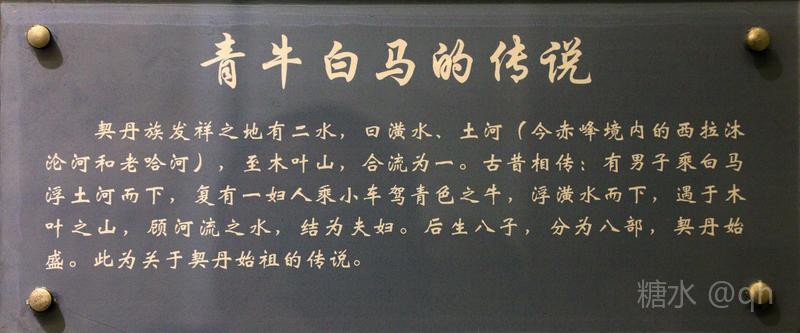 青牛白马的传说
契丹族发祥之地有二水，曰潢水、土河（今赤峰境内的西拉沐
沦河和老哈河），至木叶山，合流为一。古昔相传：有男子乘白马
浮土河而下，复有一妇人乘小车驾青色之牛，浮潢水而下，遇于木
叶之山，顾河流之水，结为夫妇。后生八子，分为八部，契丹始
盛。此为关于契丹始祖的传说。
糖水 @qh